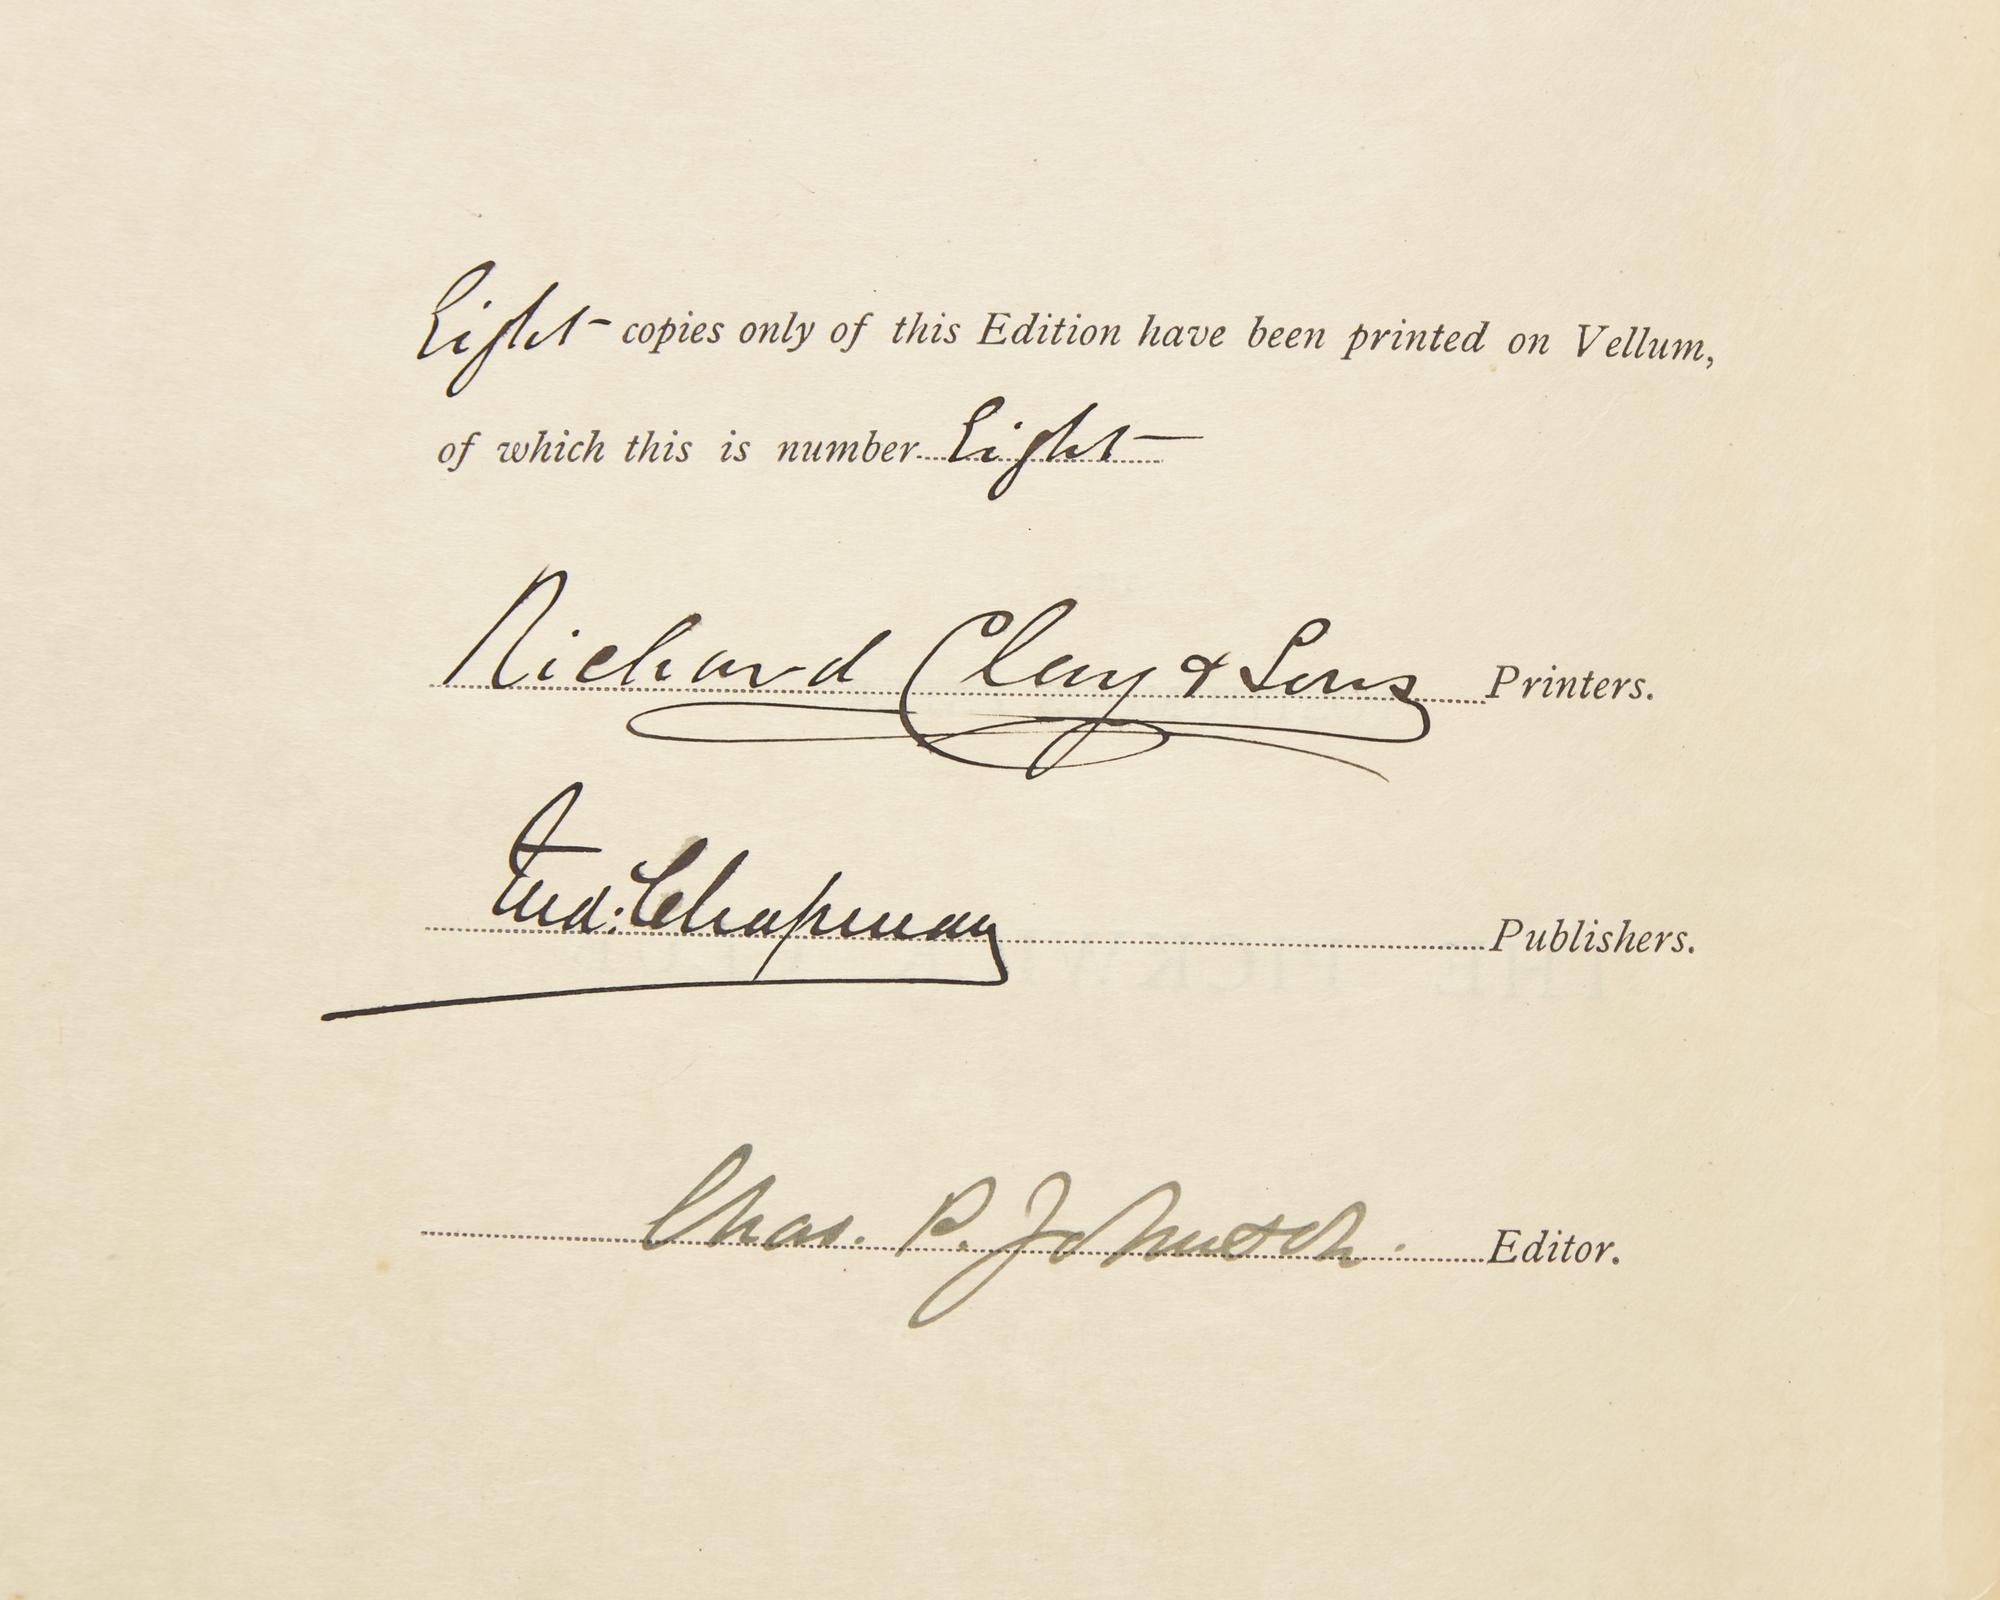 Eight copies only of this Edition have been printed on Vellum,
of which this is number Eight
Richard Clay & Sons Printers.
Fred. Chapman Publishers.
Chas. P. Johnson. Editor.